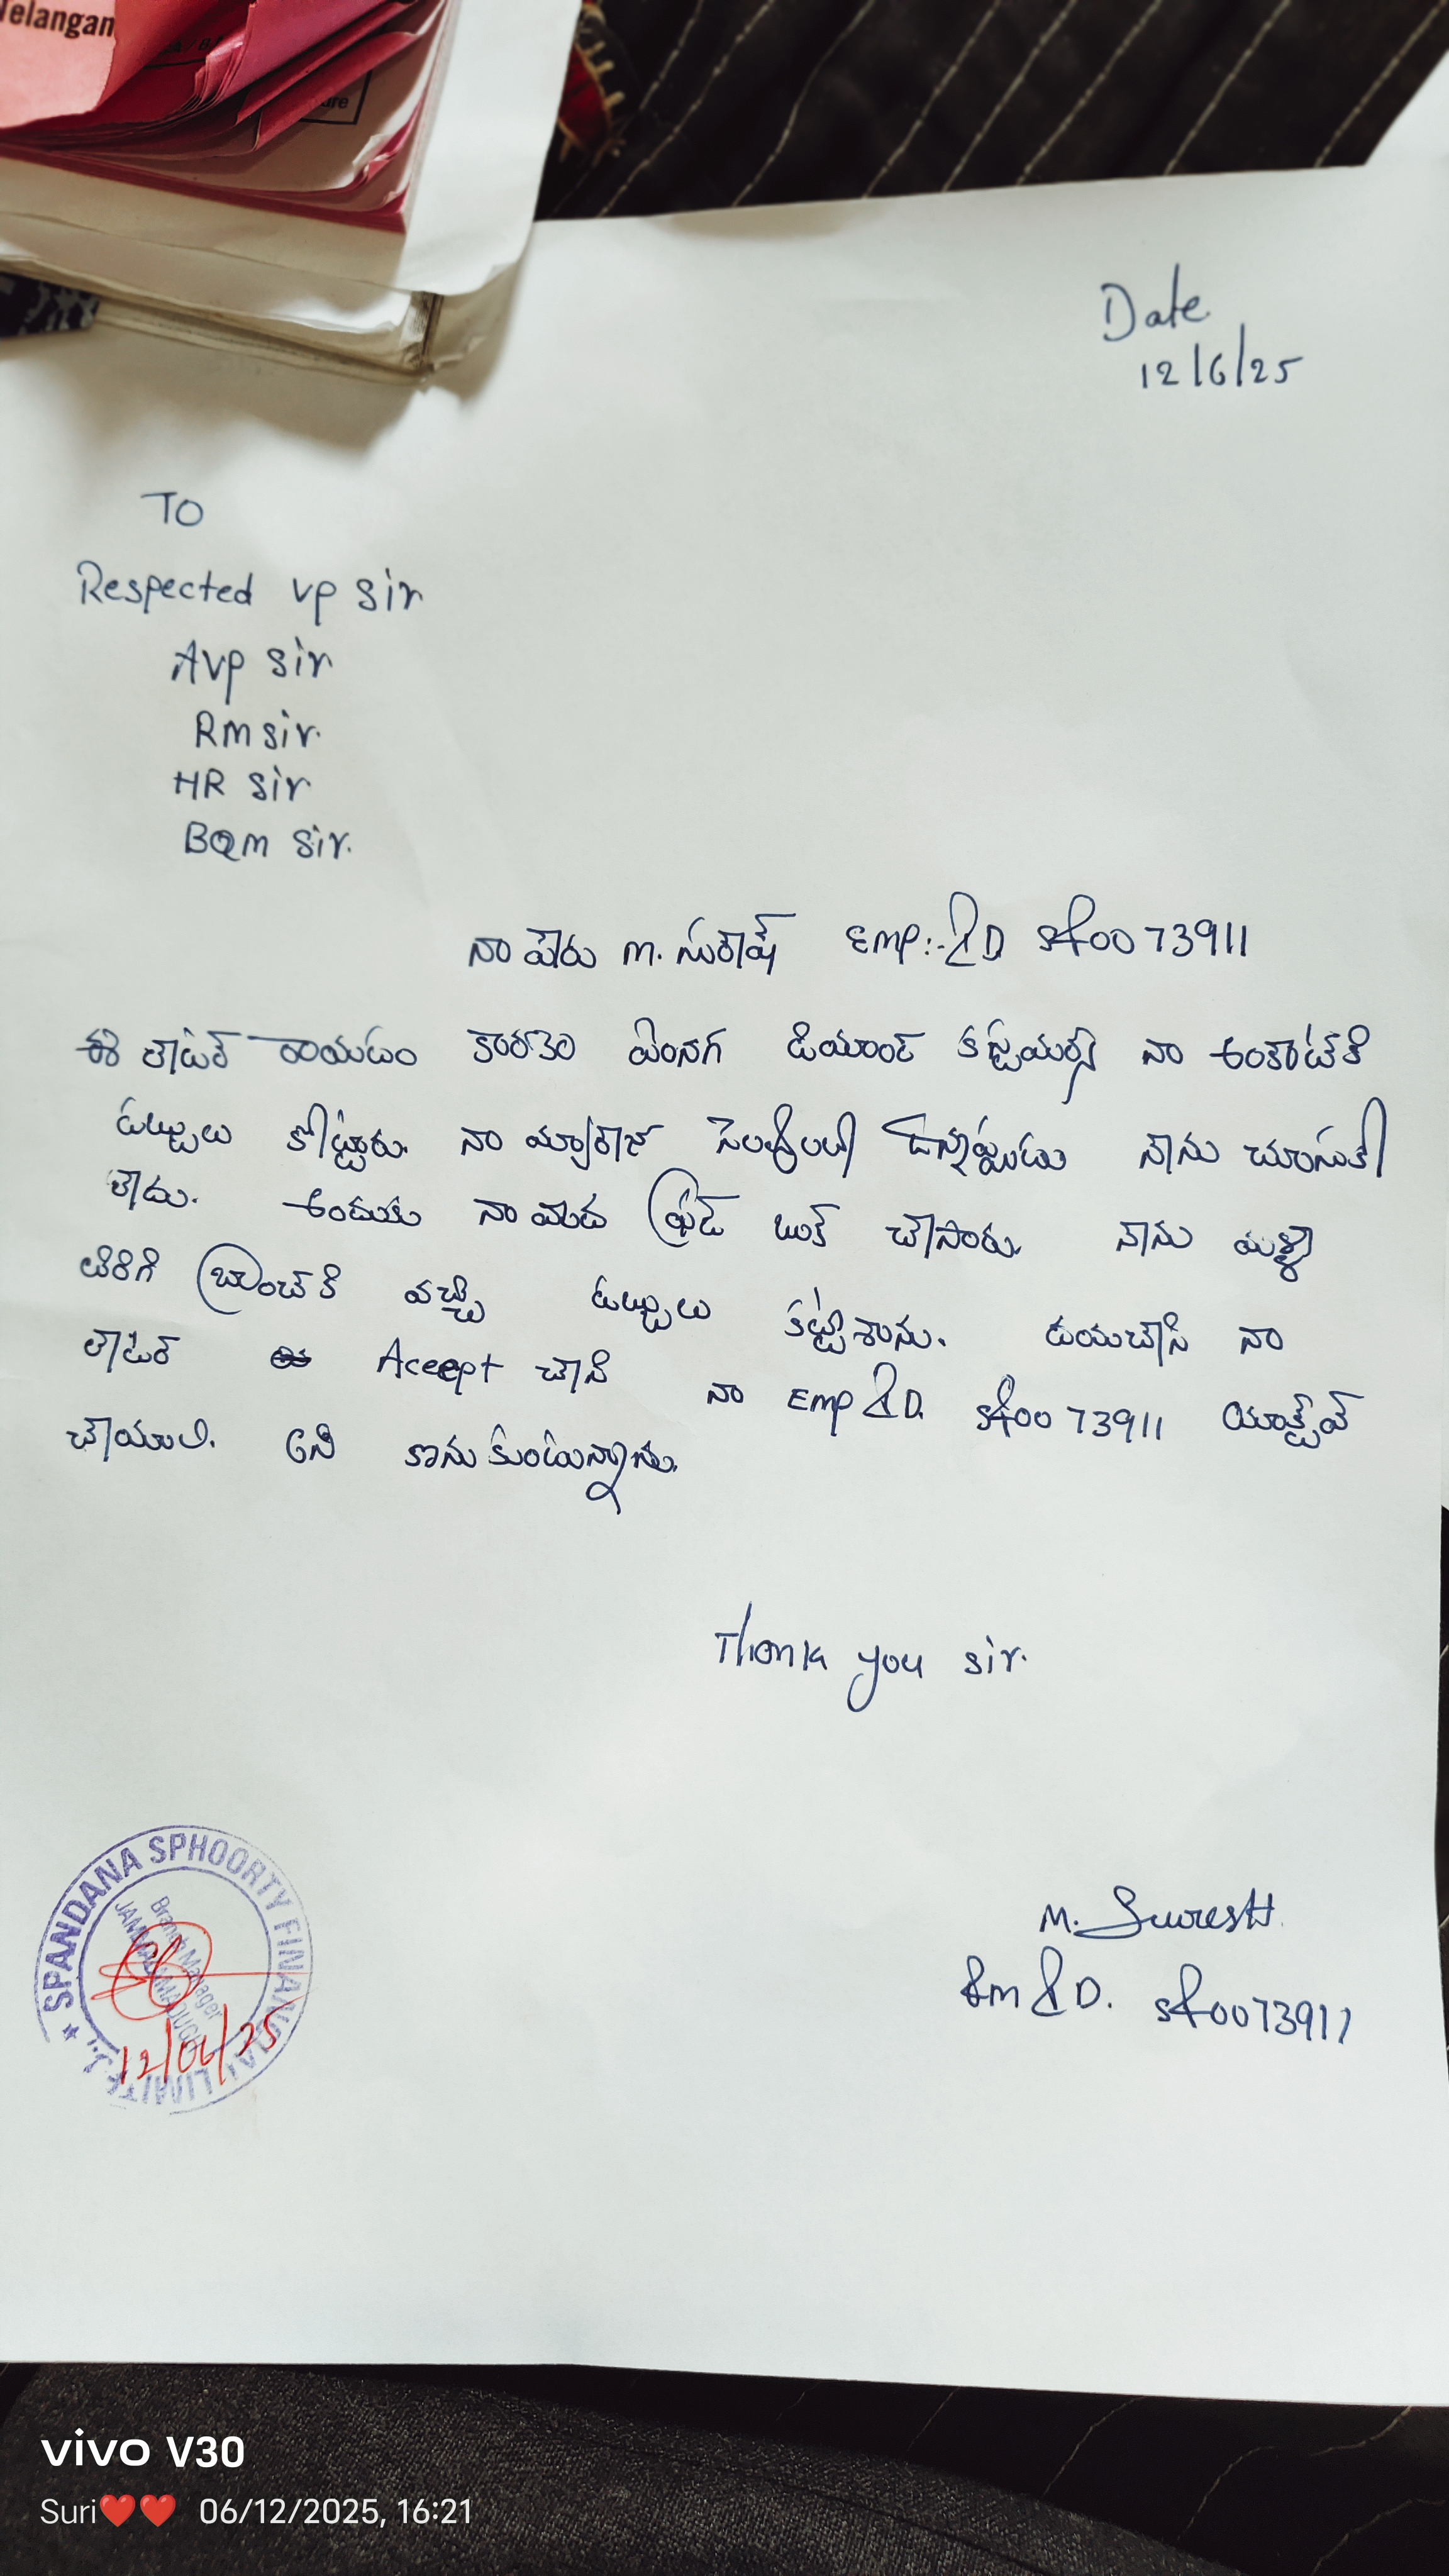 Telangan
Date
12/6/25
TO
Respected vp sir
Avp sir
Rm sir.
HR sir
BQm sir.
నా పేరు m. సురేష్ Emp:-ID sf0073911
ఈ లేటర్ రాయటం కారణం ఏంనగ డియాంండ్ కస్టమర్స్ నా అంకాటేకి
డబ్బులు కోట్టారు. నా మ్యారేజ్ సెలవులలో ఉన్నప్పుడు నేను చూసుకో
లేదు. అందుకు నా మీద ఫ్రాడ్ బుక్ చేసారు. నేను మళ్ళీ
తిరిగి బ్రాంచ్ కి వచ్చి డబ్బులు కట్టేశాను. దయచేసి నా
లేటర్ Aceept చేసి నా Emp ID. sf0073911 యాక్టివ్
చేయాలి. అని కొనుకుంటున్నాను.
Thank you sir.
M. Suresh
Em ID. sf0073911
SPANDANA SPHOORTY FINANCIAL LIMITED
Branch Manager
JAMMALAMADUGU
12/06/25
vivo V30
Suri❤️❤️ 06/12/2025, 16:21